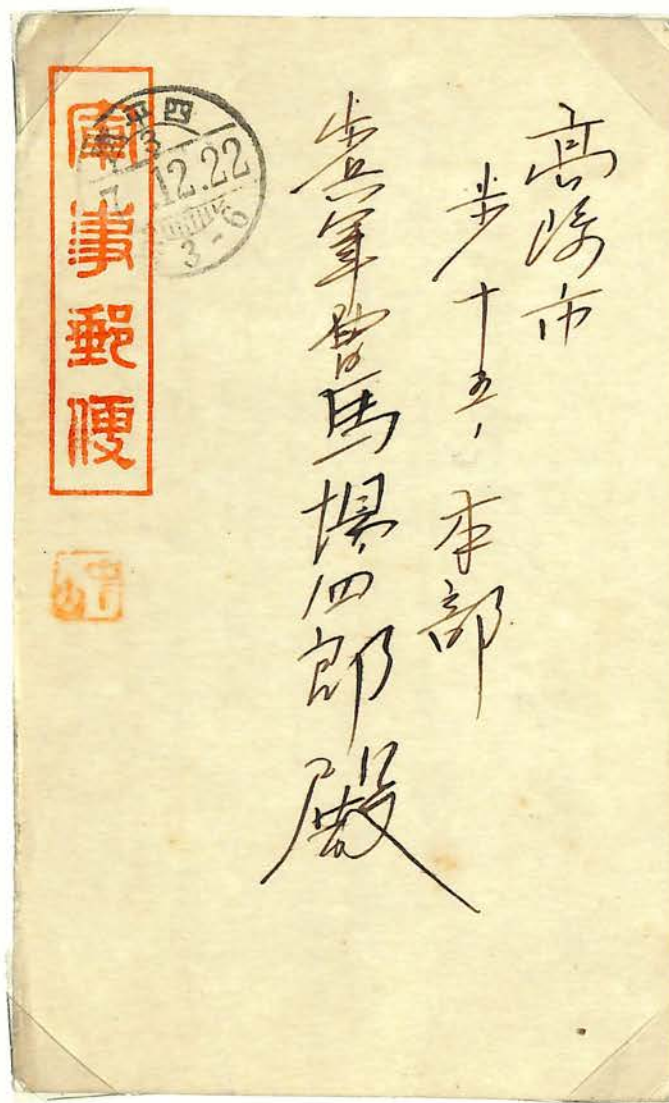 高崎市
歩十五、本部
歩兵軍曹馬場四郎殿
軍事郵便
四平
12.22
3-6